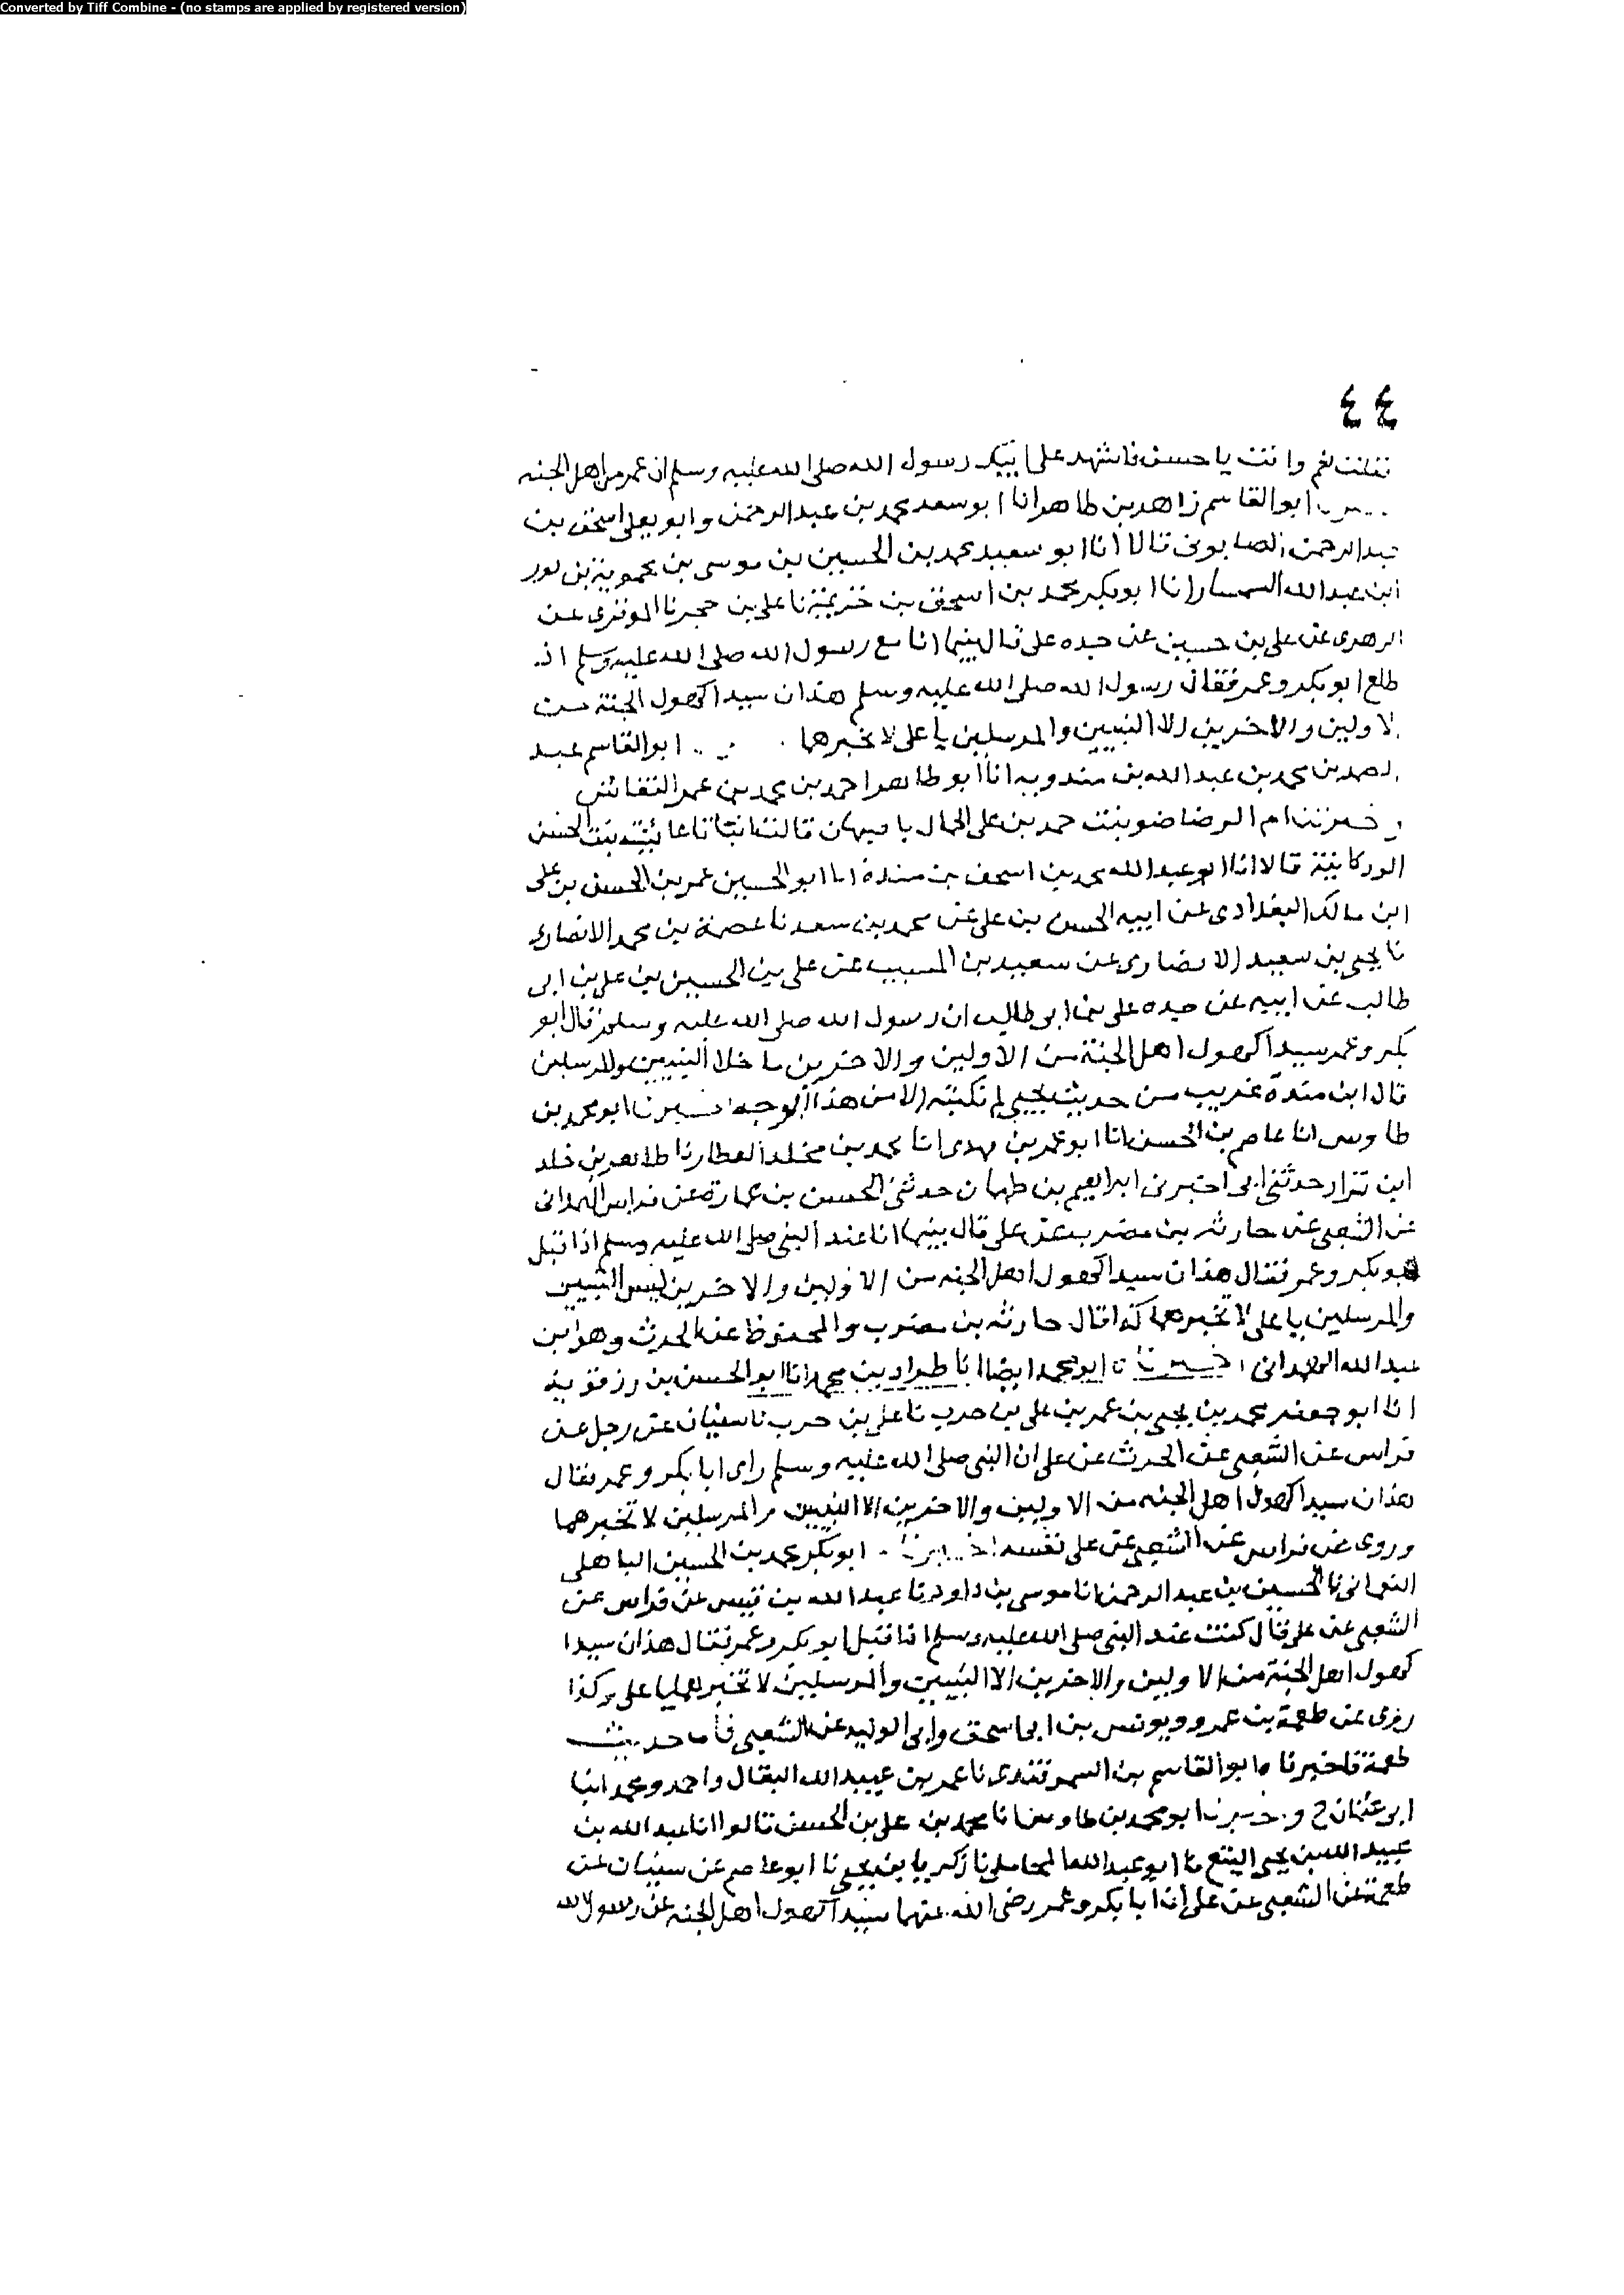 Converted by Tiff Combine - (no stamps are applied by registered version)
٤٤
فقلت نعم وانت يا حسن فاشهد على ابيك رسول الله صلى الله عليه وسلم ان عمر من اهل الجنه
ابو القاسم زاهر بن طاهر انا ابو سعد محمد بن عبد الرحمن وابو يعلى اسحق بن
عبد الرحمن الصابونى قالا انا ابو سعيد محمد بن الحسين بن موسى بن محمويه بن
ابن عبد الله السمسار انا ابو بكر محمد بن اسحق بن خزيمة نا على بن حجر نا الموقرى عن
الزهرى عن على بن حسين عن جده على قال بينما انا مع رسول الله صلى الله عليه وسلم اذ
طلع ابو بكر وعمر فقال رسول الله صلى الله عليه وسلم هذان سيدا كهول الجنة من
الاولين والاخرين الا النبيين والمرسلين يا على لا تخبرهما ابو القاسم عبد
الصمد بن محمد بن عبد الله بن مندويه انا ابو طاهر احمد بن محمد بن عمر النقاش
واخبرتنا ام الرضا ضو بنت حمد بن على الحال باصبهان قالت انبا تنا عائشة بنت الحسن
الوركانية قالا انا ابو عبد الله محمد بن اسحق بن مندة انا ابو الحسين عمر بن الحسن بن على
ابن مالك البغدادى عن ابيه الحسن بن على عن محمد بن سعد نا عصمة بن محمد الانصارى
نا يحيى بن سعيد الانصارى عن سعيد بن المسيب عن على بن الحسين بن على بن ابى
طالب عن ابيه عن جده على بن ابى طالب ان رسول الله صلى الله عليه وسلم قال ابو
بكر وعمر سيدا كهول اهل الجنة من الاولين والاخرين ما خلا النبيين والمرسلين
قال ابن مندة غريب من حديث يحيى لم نكتبه الا من هذا الوجه اخبرنا ابو محمد بن
طاوس انا عاصم بن الحسن انا ابو عمر بن مهدى انا محمد بن مخلد العطار نا طاهر بن خلد
ابن نزار حدثنى ابى اخبرنى ابراهيم بن طهمان حدثنى الحسن بن عمارة عن فراس الهمدانى
عن الشعبى عن حارثه بن مضرب عن على قال بينما انا عند النبى صلى الله عليه وسلم اذ اقبل
ابو بكر وعمر فقال هذان سيدا كهول اهل الجنه من الاولين والاخرين ليس النبيين
والمرسلين يا على لا تخبرهما كذا قال حارثه بن مضرب والمحفوظ عن الحرث وهو ابن
عبد الله الهمدانى اخبرنا نا ابو محمد ايضا انا طراد بن محمد انا ابو الحسن بن رزقويه
انا ابو جعفر محمد بن يحيى بن عمر بن على بن حرب نا على بن حرب نا سفيان عن رجل عن
فراس عن الشعبى عن الحرث عن على ان النبى صلى الله عليه وسلم راى ابا بكر وعمر فقال
هذان سيدا كهول اهل الجنه من الاولين والاخرين الا النبيين والمرسلين لا تخبرهما
وروى عن فراس عن الشعبى عن على نفسه اخبرنا ابو بكر محمد بن الحسين الباهلى
النعمانى نا الحسين بن عبد الرحمن انا موسى بن داود نا عبد الله بن نفيس عن فراس عن
الشعبى عن على قال كنت عند النبى صلى الله عليه وسلم فاقبل ابو بكر وعمر فقال هذان سيدا
كهول اهل الجنة من الاولين والاخرين الا النبيين والمرسلين لا تخبرهما يا على وكذا
روى عن طعمة بن عمرو ويونس بن ابى اسحق وابى الوليد عن الشعبى فاما حديث
طعمة فاخبرنا ابو القاسم بن السمرقندى نا عمر بن عبيد الله البقال واحمد ومحمد ابنا
ابو عثمان ح واخبرنا ابو محمد بن طاوس انا محمد بن على بن الحسن قالوا انا عبد الله بن
عبيد الله بن يحيى البيع نا ابو عبد الله المحاملى نا زكريا بن يحيى نا ابو عاصم عن سفيان عن
طعمة عن الشعبى عن على ان ابا بكر وعمر رضى الله عنهما سيدا كهول اهل الجنه عن رسول الله